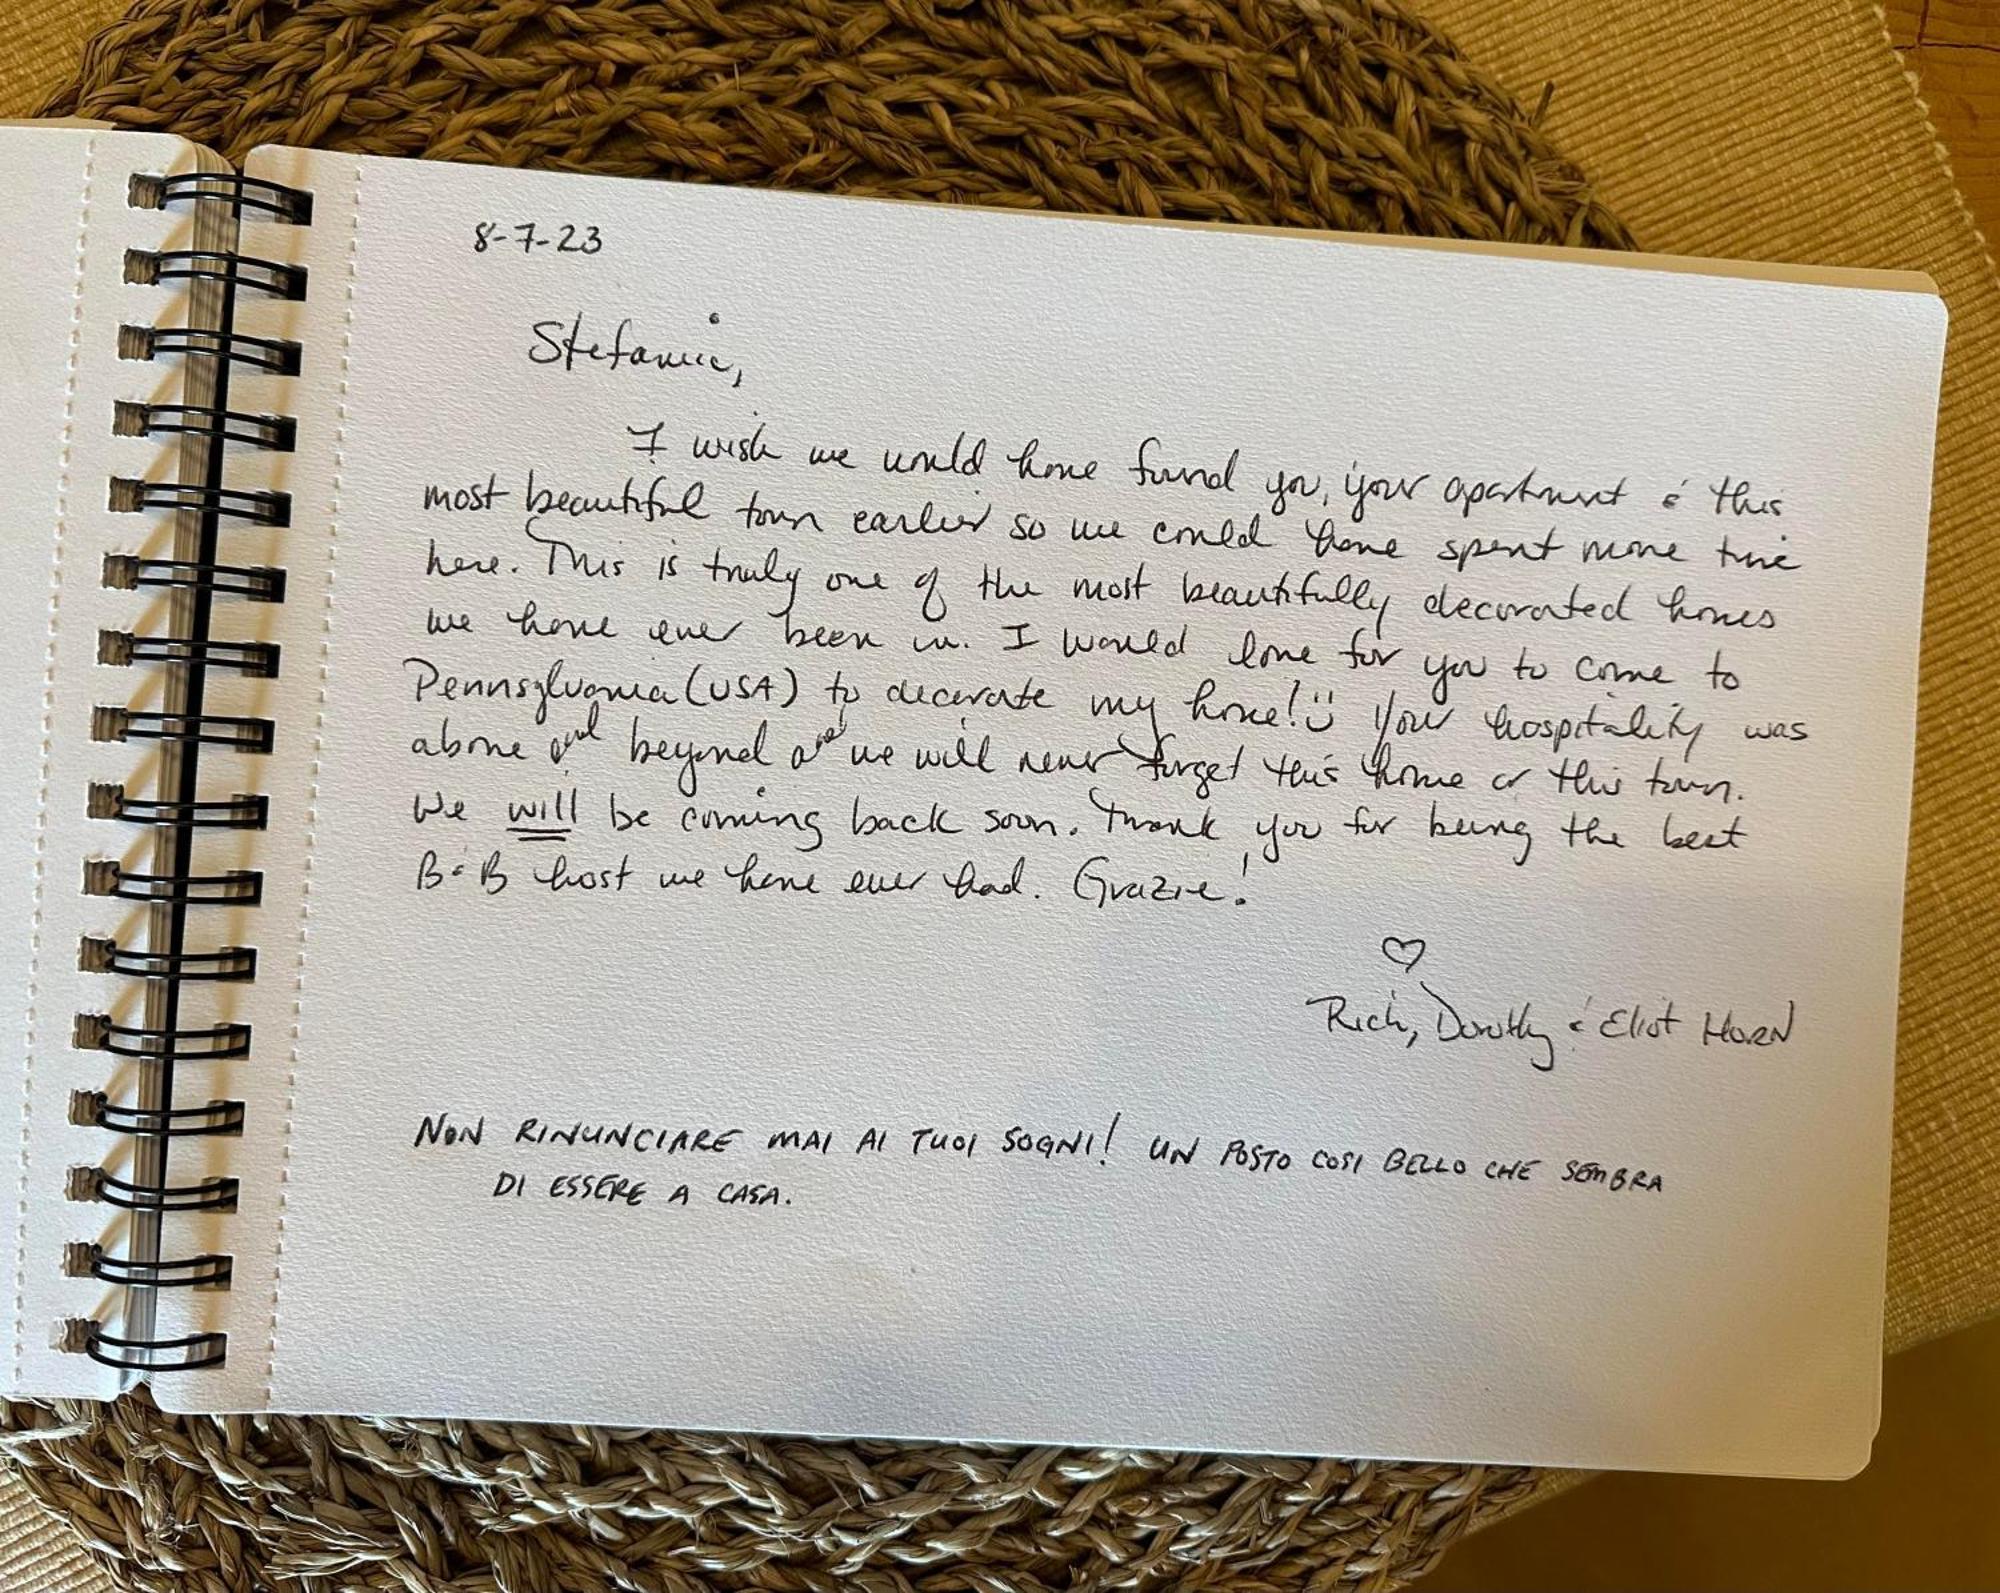 8-7-23
Stefanie,
I wish we would have found you, your apartment & this
most beautiful town earlier so we could have spent more time
here. This is truly one of the most beautifully decorated homes
we have ever been in. I would love for you to come to
Pennsylvania (USA) to decorate my home! :) Your hospitality was
above and beyond and we will never forget this home or this town.
We will be coming back soon. Thank you for being the best
B&B host we have ever had. Grazie!
♡
Rich, Dorothy & Eliot HORN
NON RINUNCIARE MAI AI TUOI SOGNI! UN POSTO COSI BELLO CHE SEMBRA
DI ESSERE A CASA.